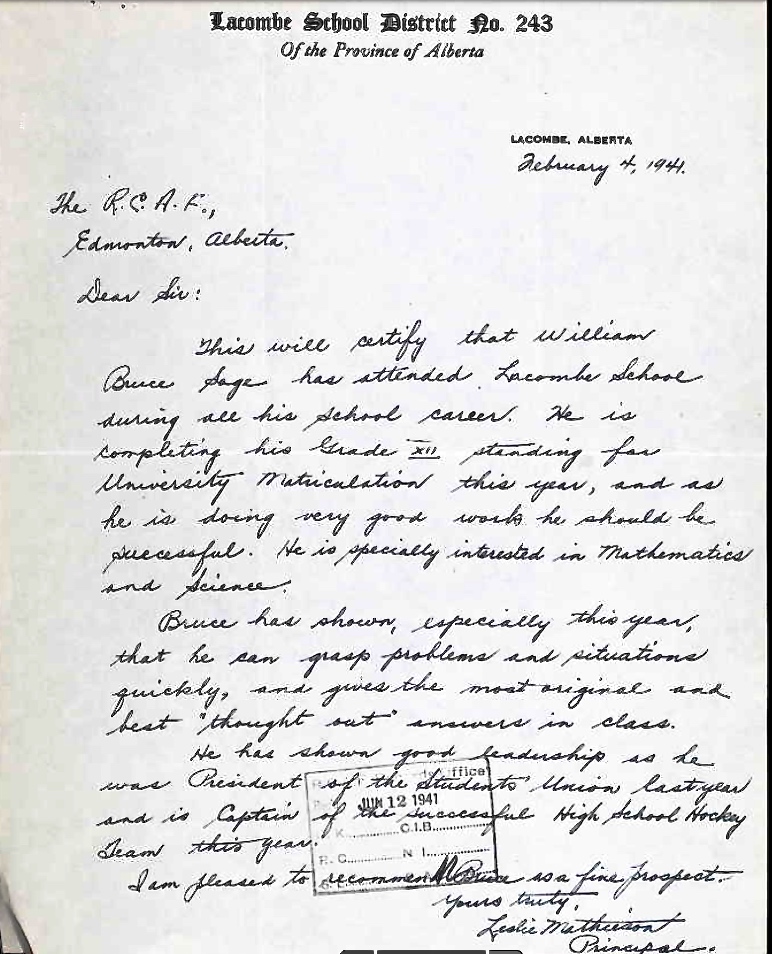 Lacombe School District No. 243
Of the Province of Alberta
LACOMBE, ALBERTA
February 4, 1941.
The R.C.A.F.,
Edmonton, Alberta.
Dear Sir:
This will certify that William
Bruce Sage has attended Lacombe School
during all his school career. He is
completing his Grade XII standing for
University Matriculation this year, and as
he is doing very good work he should be
successful. He is specially interested in Mathematics
and Science.
Bruce has shown, especially this year,
that he can grasp problems and situations
quickly, and gives the most original and
best "thought out" answers in class.
He has shown good leadership as he
was President of the Students' Union last year
and is Captain of the successful High School Hockey
Team this year.
I am pleased to recommend Bruce as a fine prospect.
Yours truly,
Leslie Mathieson
Principal.
ffice
JUN 12 1941
K. C.I.B.
R.C. N I